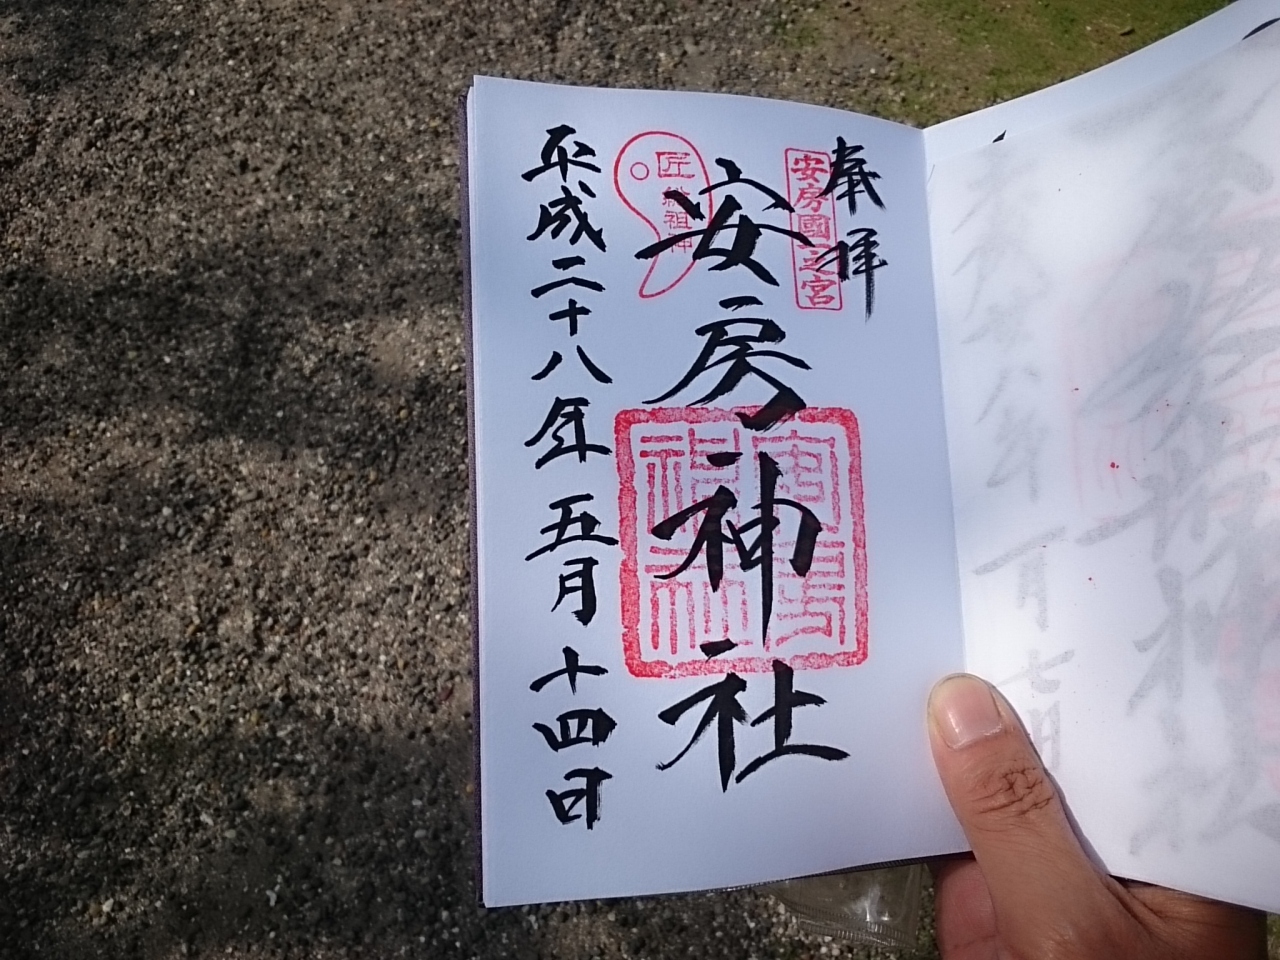 奉拝
安房國一之宮
安房神社
匠総祖神
安房神社
平成二十八年五月十四日